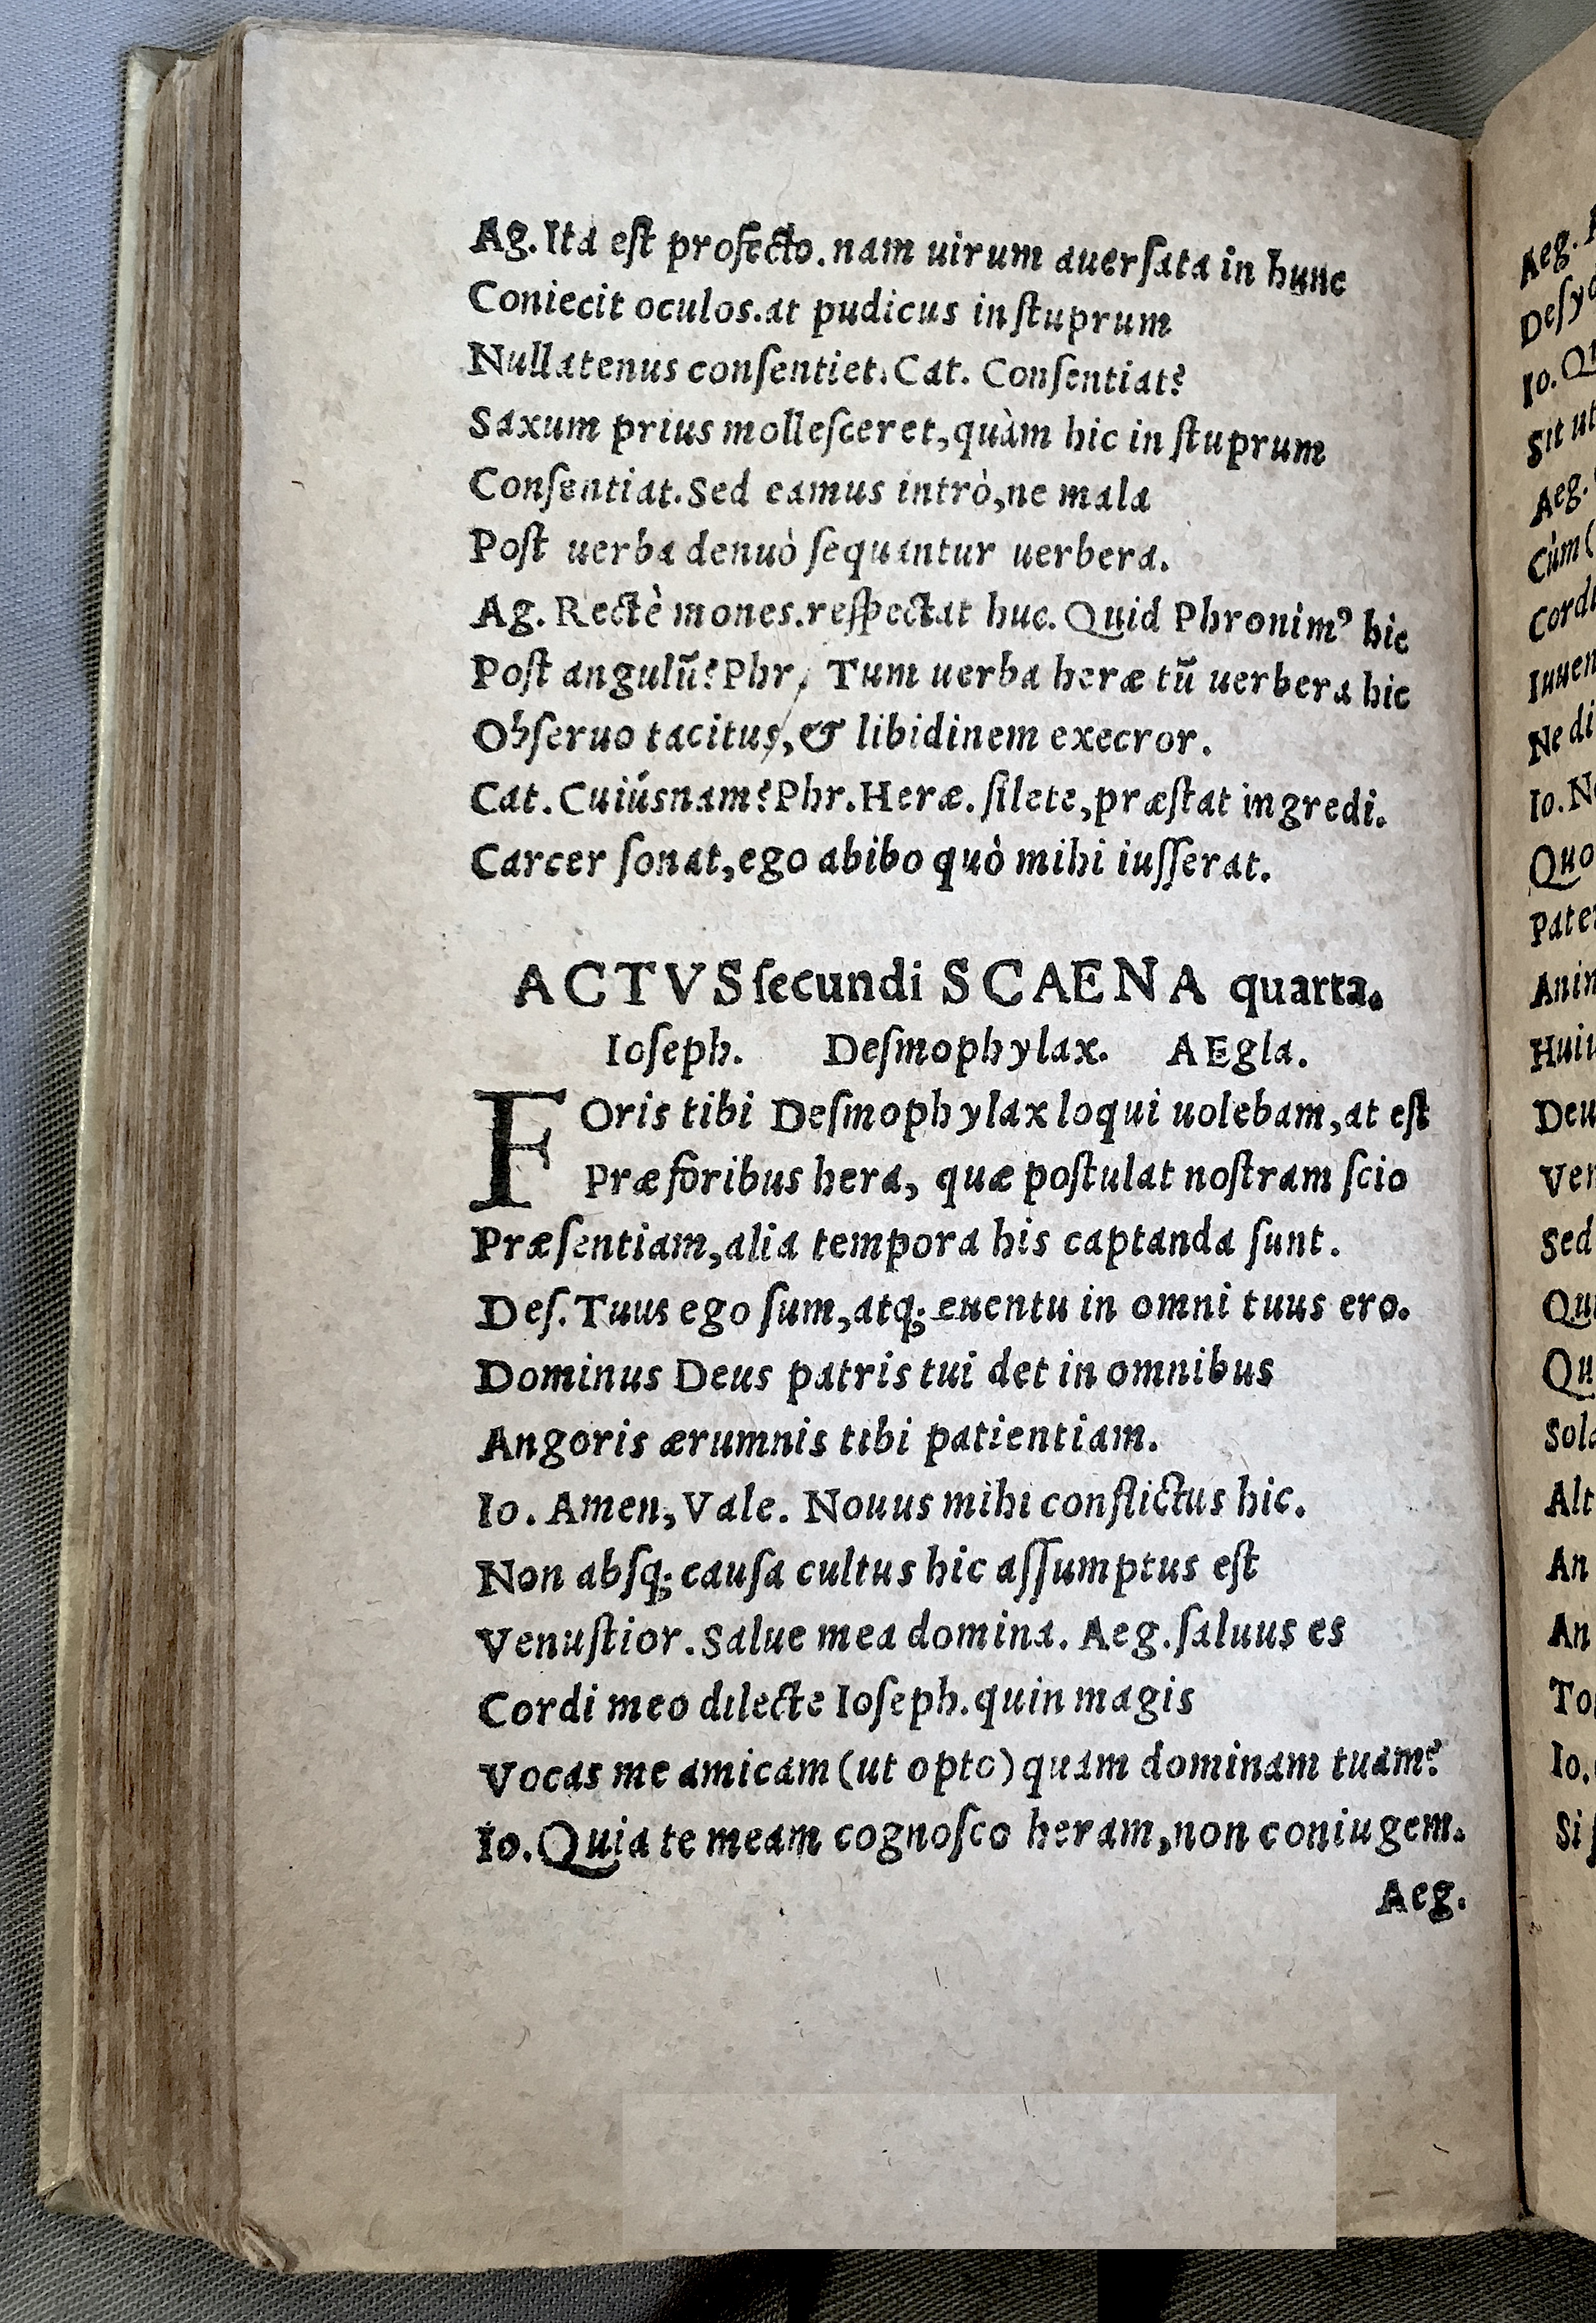 Ag. Ita eſt profecto. nam uirum auerſata in hunc
Coniecit oculos. at pudicus in ſtuprum
Nullatenus conſentiet. Cat. Conſentiat?
Saxum prius molleſceret, quàm hic in ſtuprum
Conſentiat. Sed eamus intrò, ne mala
Poſt uerba denuò ſequantur uerbera.
Ag. Rectè mones. reſpectat huc. Quid Phronimꝰ hic
Poſt angulũ? Phr. Tum uerba heræ tũ uerbera hic
Obſeruo tacitus, & libidinem execror.
Cat. Cuiúsnam? Phr. Heræ. ſilete, præſtat ingredi.
Carcer ſonat, ego abibo quò mihi iuſſerat.
ACTVS ſecundi SCAENA quarta.
Ioſeph. Deſmophylax. AEgla.
FOris tibi Deſmophylax loqui uolebam, at eſt
Præ foribus hera, quæ poſtulat noſtram ſcio
Præſentiam, alia tempora his captanda ſunt.
Deſ. Tuus ego ſum, atq; euentu in omni tuus ero.
Dominus Deus patris tui det in omnibus
Angoris ærumnis tibi patientiam.
Io. Amen, Vale. Nouus mihi conflictus hic.
Non abſq; cauſa cultus hic aſſumptus eſt
Venuſtior. Salue mea domina. Aeg. ſaluus es
Cordi meo dilecte Ioſeph. quin magis
Vocas me amicam (ut opto) quam dominam tuam?
Io. Quia te meam cognoſco heram, non coniugem.
Aeg.
Aeg.
Io.
Sit ut
Aeg.
Ne di
Io. N
Quo
Ven
Sed
Alt
An
An
Io.
Si